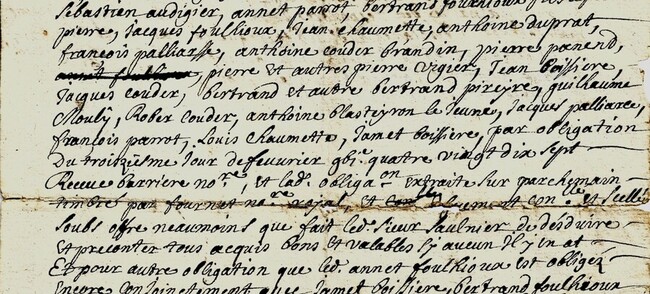 Sebastien audigier, annet parrot, bertrand
pierre, Jacques foulhioux, Jean chaumette, anthoine duprat,
françois palliasse, anthoine couder brandin, pierre panend,
pierre Et autres pierre vigier, Jean boissière,
Jacques couder, bertrand et autre bertrand pireyre, guilhaume
Mouly, Rober couder, anthoine blasteyron le Jeune, Jacques palliance,
françois parrot, Louis Chaumette, Jamet boissière, par obligation
Du troiziesme Jour defeuvrier gbi.e quatre vingt dix sept
Receue barriere no.re, Et lad. obliga.on Extraite Sur parchemain
timbré par fournet no.re royal, Et con.lé et Scellé
Soubs offre neaumoins que fait led. Sieur Saulnier de desduire
Et preconter tous acquis bons et valables Sy aucun Il y en at
Et pour autre obligation que led. annet foulhioux est obligé
Encore Conjoinctement avec Jamet boissière, bertrand foulhioux